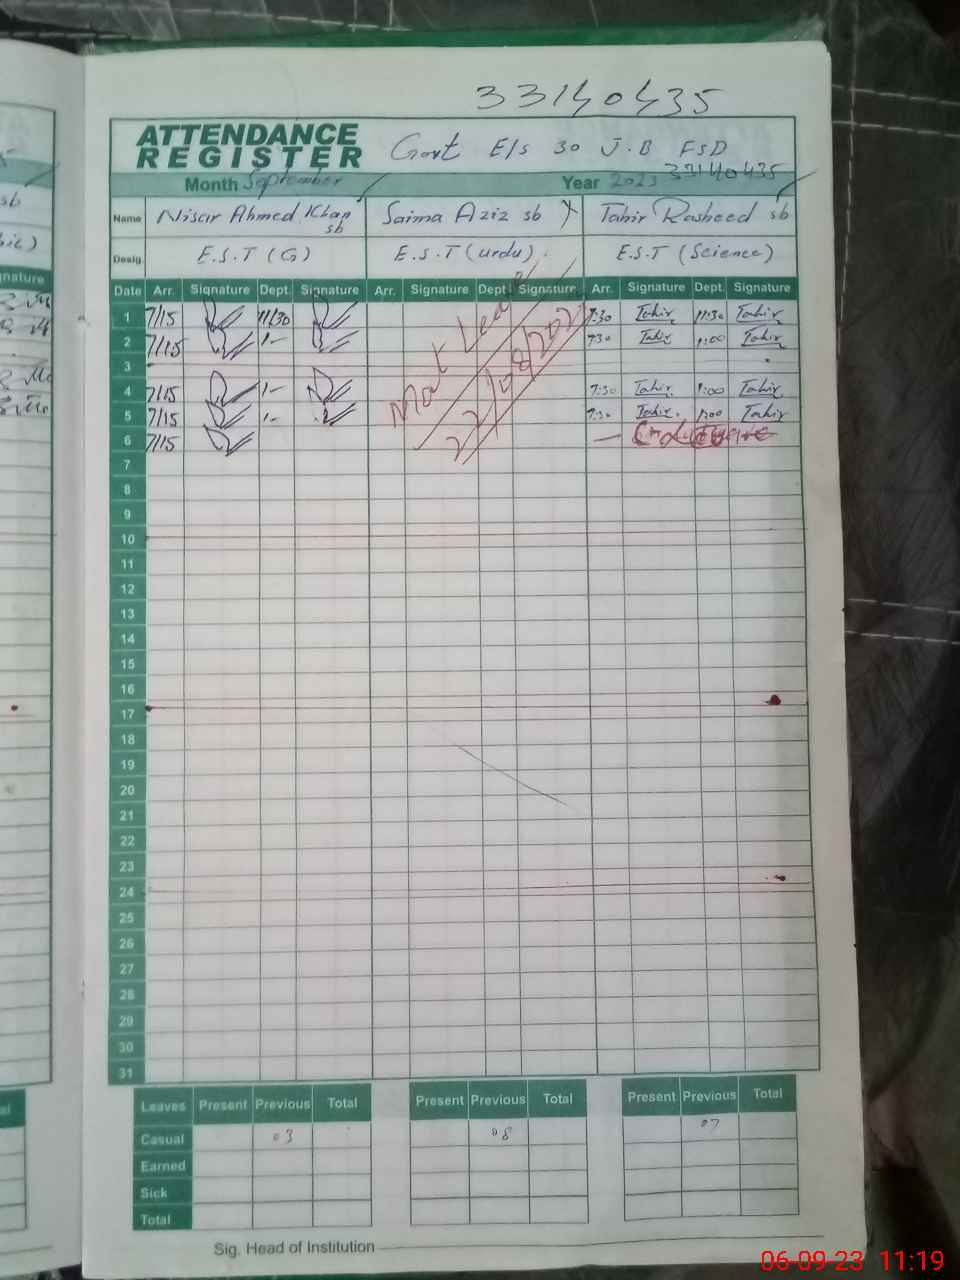 33140435
ATTENDANCE
REGISTER
Govt E/s 30 J.B FSD
33140435
Month September Year 2023
Name Nisar Ahmed Khan sb Saima Aziz sb Tahir Rasheed sb
Desig. E.S.T (G) E.S.T (urdu) E.S.T (Science)
Date Arr. Signature Dept. Signature Arr. Signature Dept. Signature Arr. Signature Dept. Signature
1 7/15 11/30 7:30 Tahir 11:30 Tahir
2 7/15 1- 7:30 Tahir 1:00 Tahir
3
4 7/15 1- 7:30 Tahir 1:00 Tahir
5 7/15 1- 7:30 Tahir 1:00 Tahir
6 7/15
Mat Leave
7
8
9
10
11
12
13
14
15
16
17
18
19
20
21
22
23
24
25
26
27
28
29
30
31
Leaves Present Previous Total Present Previous Total Present Previous Total
Casual 03 08 07
Earned
Sick
Total
Sig. Head of Institution
06-09-23 11:19